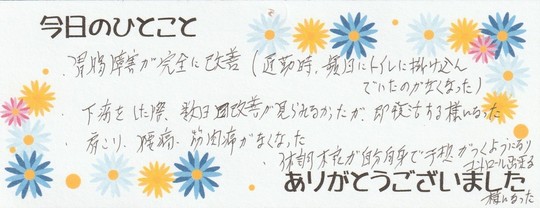 今日のひとこと
・胃腸障害が完全に改善(通勤時、頻回にトイレに掛け込ん
でいたのがなくなった)
・下痢をした際、数日 改善が見られなかったが、即復活する様になった
・肩こり、腰痛、筋肉痛がなくなった
・体調 が自分自身で予想がつくようになり
コントロール出来る
様になった
ありがとうございました